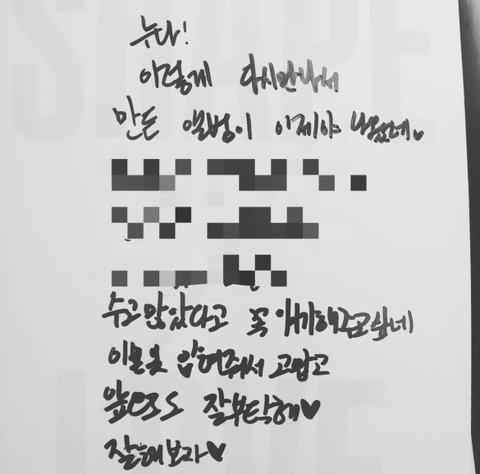 누나!
이렇게 다시만나서
만든 앨범이 이제야 나왔네♥
수고많았다고 꼭 얘기해주고싶네
이쁜옷 입혀줘서 고맙고
앞으로도 잘부탁해♥
잘해보자♥